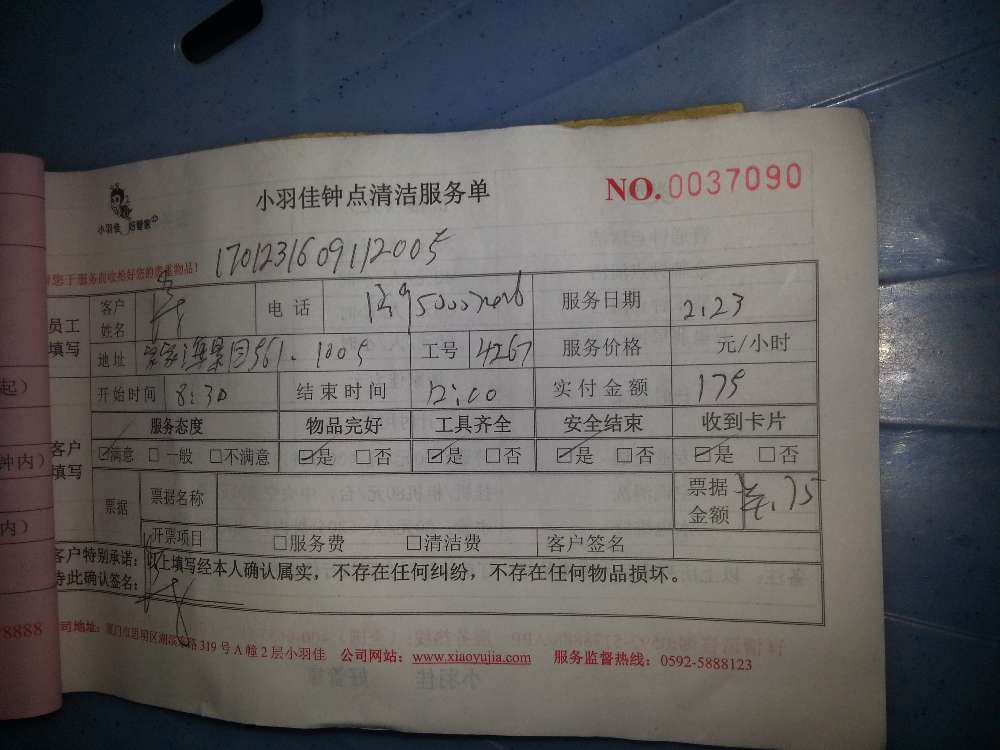 小羽佳 好管家
小羽佳钟点清洁服务单
NO. 0037090
1701231609112005
服务前收拾好您的贵重物品!
员工填写 客户姓名 电话 服务日期 2.23
地址 海景园561.1005 工号 4267 服务价格 元/小时
开始时间 8:30 结束时间 12:00 实付金额 175
客户填写 服务态度 物品完好 工具齐全 安全结束 收到卡片
☑满意 □一般 □不满意 ☑是 □否 ☑是 □否 ☑是 □否 ☑是 □否
票据 票据名称 票据金额
开票项目 □服务费 □清洁费 客户签名
客户特别承诺: 以上填写经本人确认属实，不存在任何纠纷，不存在任何物品损坏。
此确认签名:
司地址: 厦门市思明区湖滨东路319号A幢2层小羽佳 公司网站: www.xiaoyujia.com 服务监督热线: 0592-5888123
起)
钟内)
内)
8888